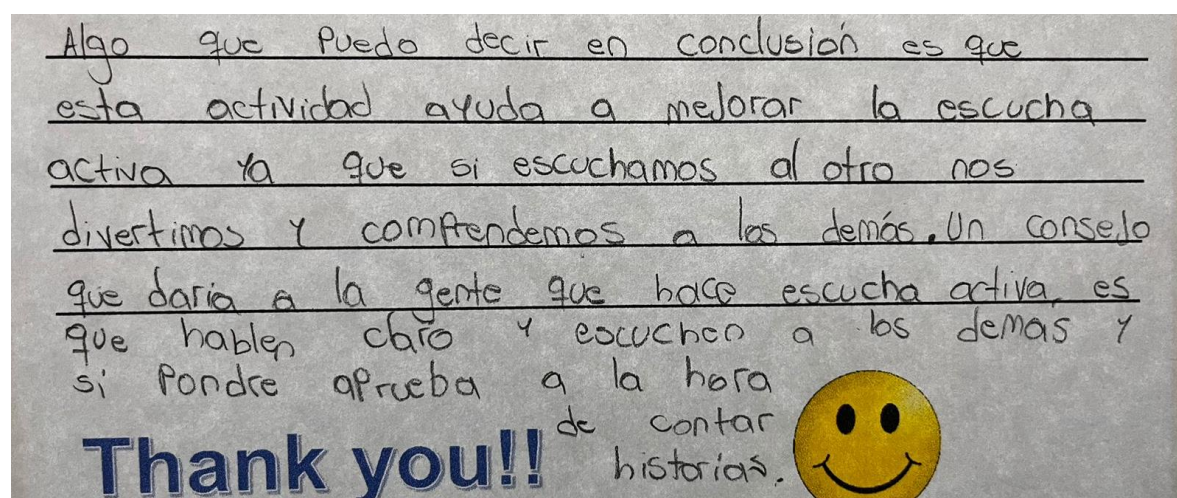 Algo que puedo decir en conclusión es que
esta actividad ayuda a mejorar la escucha
activa ya que si escuchamos al otro nos
divertimos y comprendemos a los demás. Un consejo
que daria a la gente que hace escucha activa, es
que hablen claro y escuchen a los demas y
si pondre aprueba a la hora
de contar
historias.
Thank you!!